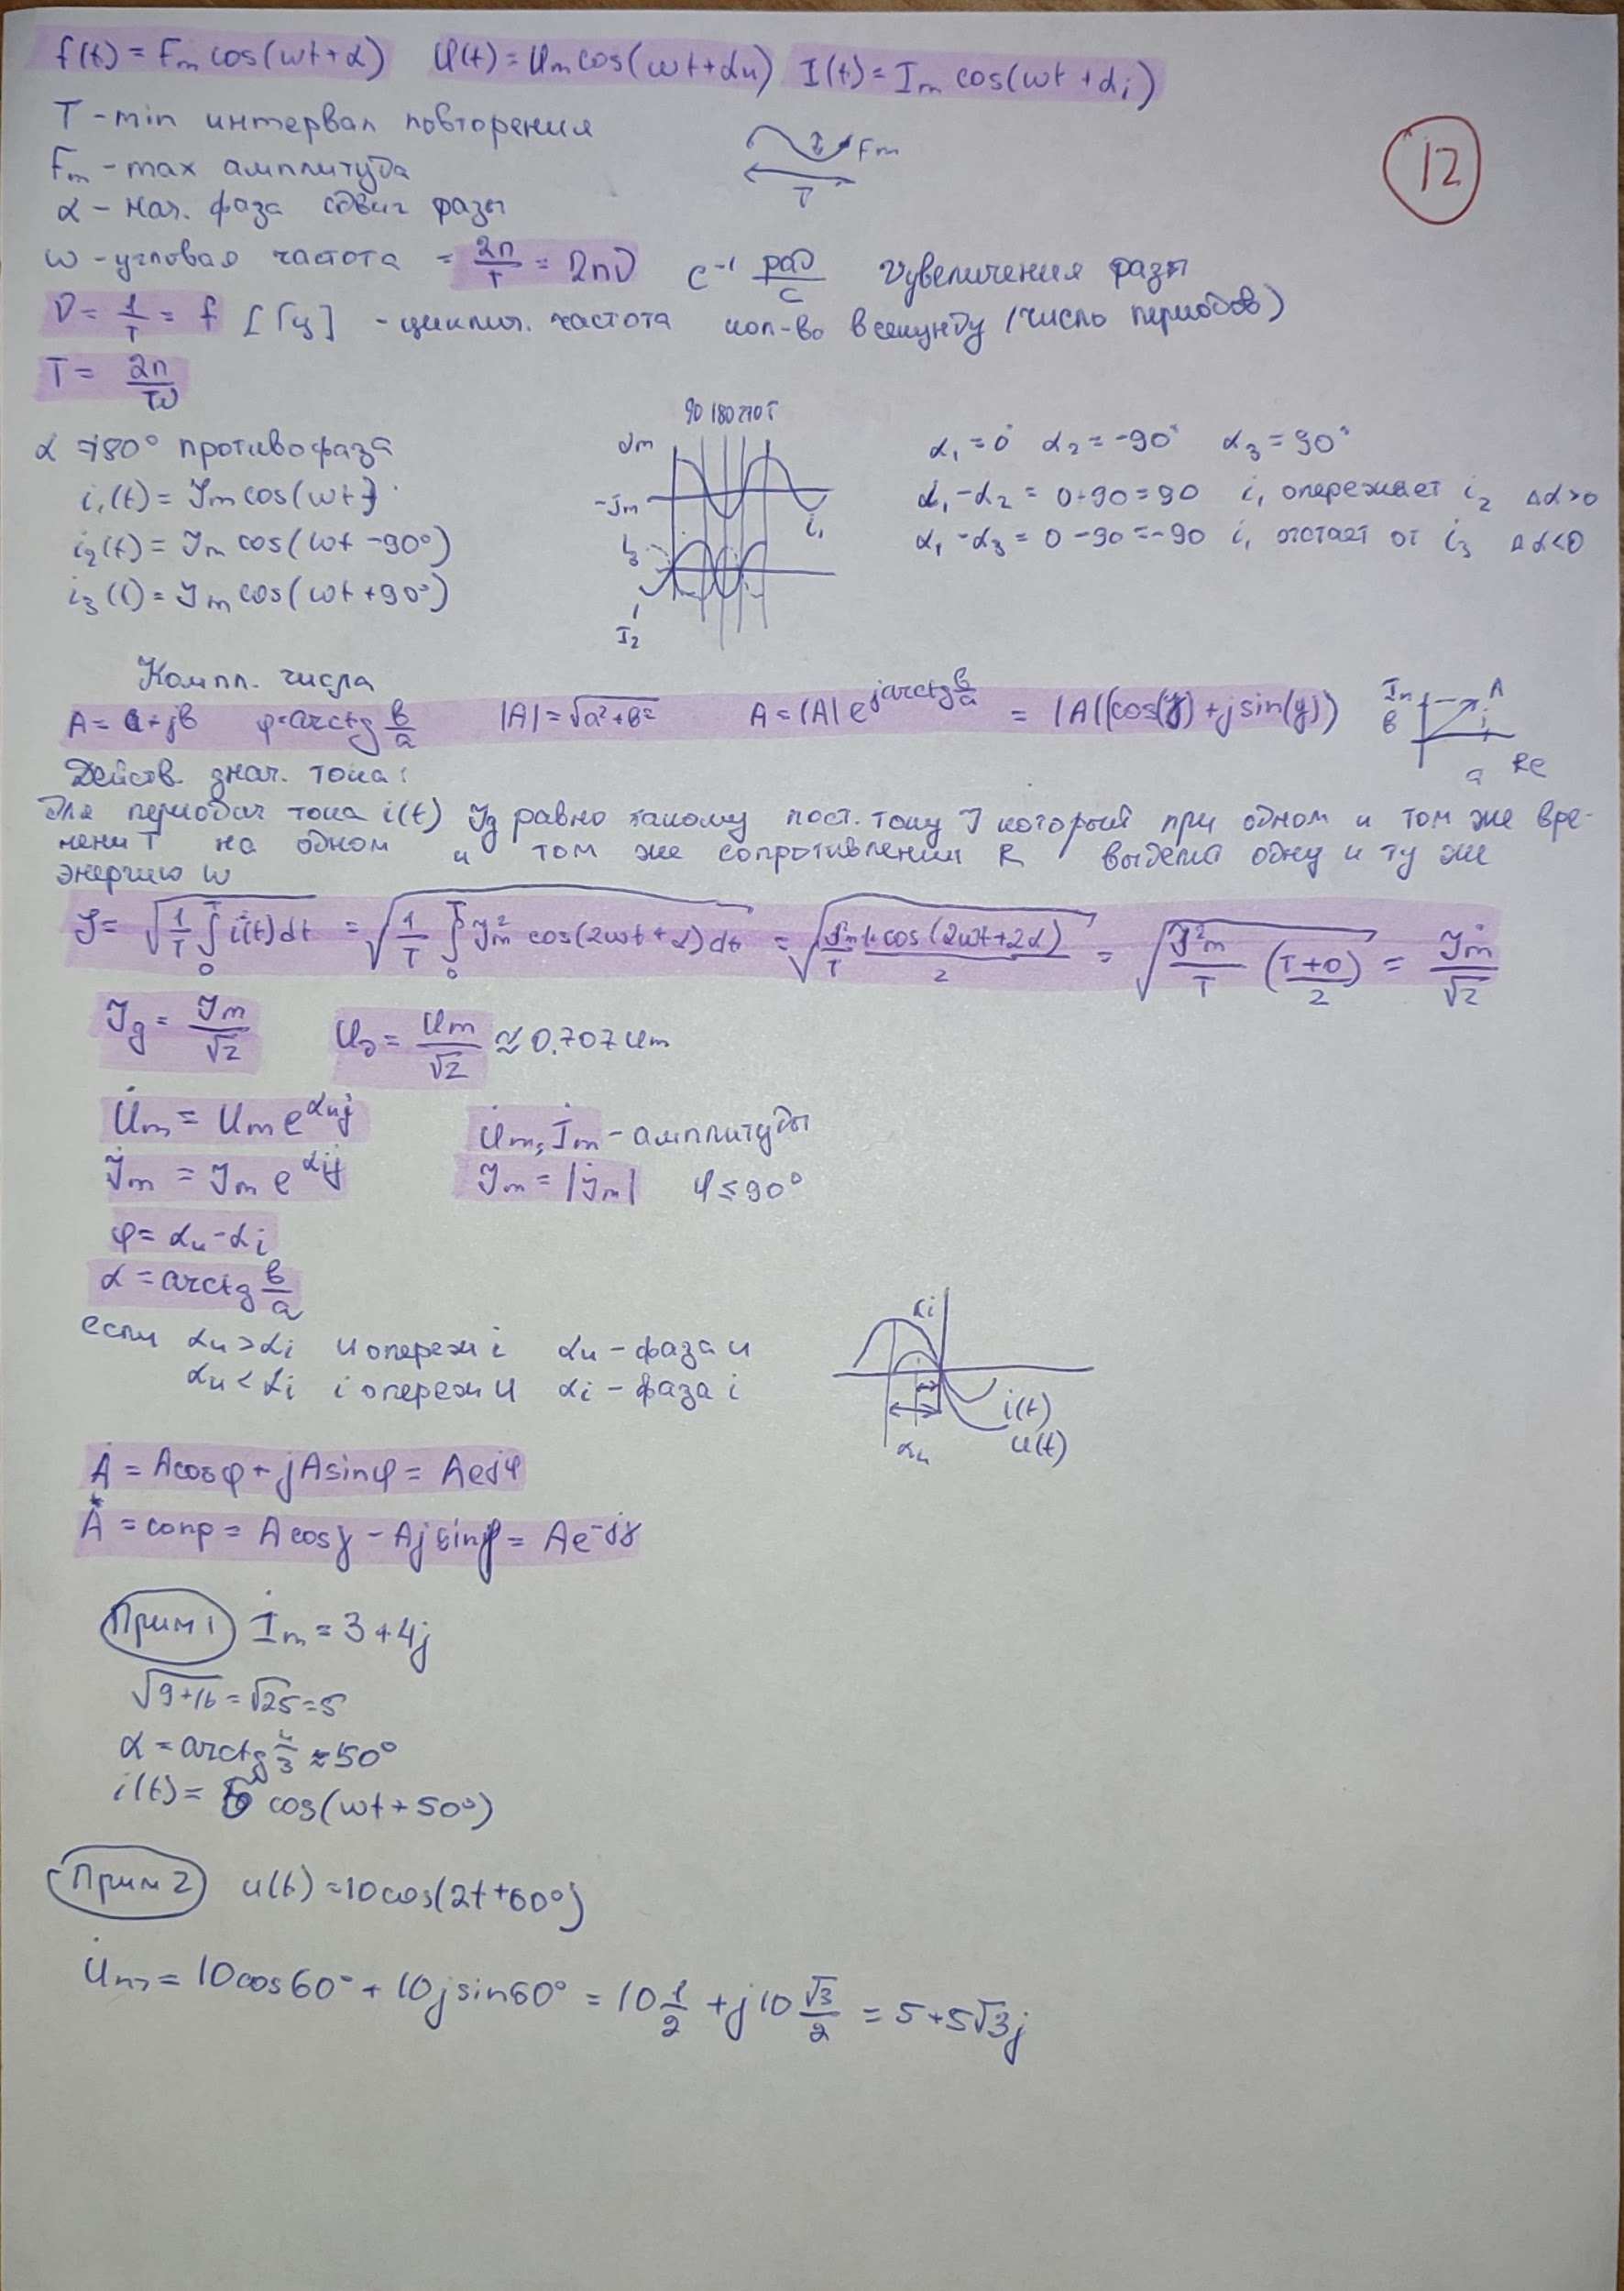 f(t) = Fm cos(ωt+α) U(t) = Um cos(ωt+αu) I(t) = Im cos(ωt+αi)
T - min интервал повторения
Fm
Fm - max амплитуда
T
12
α - нач. фаза сдвиг фазы
ω - угловая частота = 2π/T = 2πν с⁻¹ рад/с Vувеличения фазы
ν = 1/T = f [Гц] - циклич. частота кол-во в секунду (число периодов)
T = 2π/ω
90 180 270 T
α = 180° противофаза Jm α₁ = 0° α₂ = -90° α₃ = 90°
i₁(t) = Jm cos(ωt) -Jm i₁ α₁-α₂ = 0+90 = 90 i₁ опережает i₂ Δα>0
i₂(t) = Jm cos(ωt-90°) i₃ α₁-α₃ = 0-90 = -90 i₁ отстает от i₃ Δα<0
i₃(t) = Jm cos(ωt+90°) I₂
Компл. числа
A = a+jв φ=arctg в/a |A| = √a²+в² A = |A| e^(jarctg в/a) = |A|(cos(γ)+jsin(γ)) Im в A a Re
Действ. знач. тока:
Для периодич тока i(t) Jд равно такому пост. току J который при одном и том же вре-
мени T на одном и том же сопротивлении R выделит одну и ту же
энергию W
J = √(1/T ∫₀ᵀ i²(t)dt) = √(1/T ∫₀ᵀ Jm² cos(2ωt+α)dt) = √(J²m/T 1+cos(2ωt+2α)/2) = √(J²m/T (T+0)/2) = Jm/√2
Jд = Jm/√2 Uд = Um/√2 ≈ 0.707Um
U̇m = Um e^(αuj) U̇m, İm - амплитуды
J̇m = Jm e^(αij) Jm = |J̇m| φ ≤ 90°
φ = αu-αi
α = arctg в/a
если αu > αi u опереж i αu - фаза u
αu < αi i опереж u αi - фаза i
αi
i(t)
u(t)
αu
Ȧ = Acosφ + jAsinφ = Ae^jφ
Å* = сопр = Acosγ - Ajsinφ = Ae^-jγ
Прим 1 İm = 3+4j
√9+16 = √25 = 5
α = arctg 4/3 ≈ 50°
i(t) = 5 cos(ωt+50°)
Прим 2 u(t) = 10cos(2t+60°)
U̇m = 10cos60° + 10jsin60° = 10 1/2 + j10 √3/2 = 5+5√3j